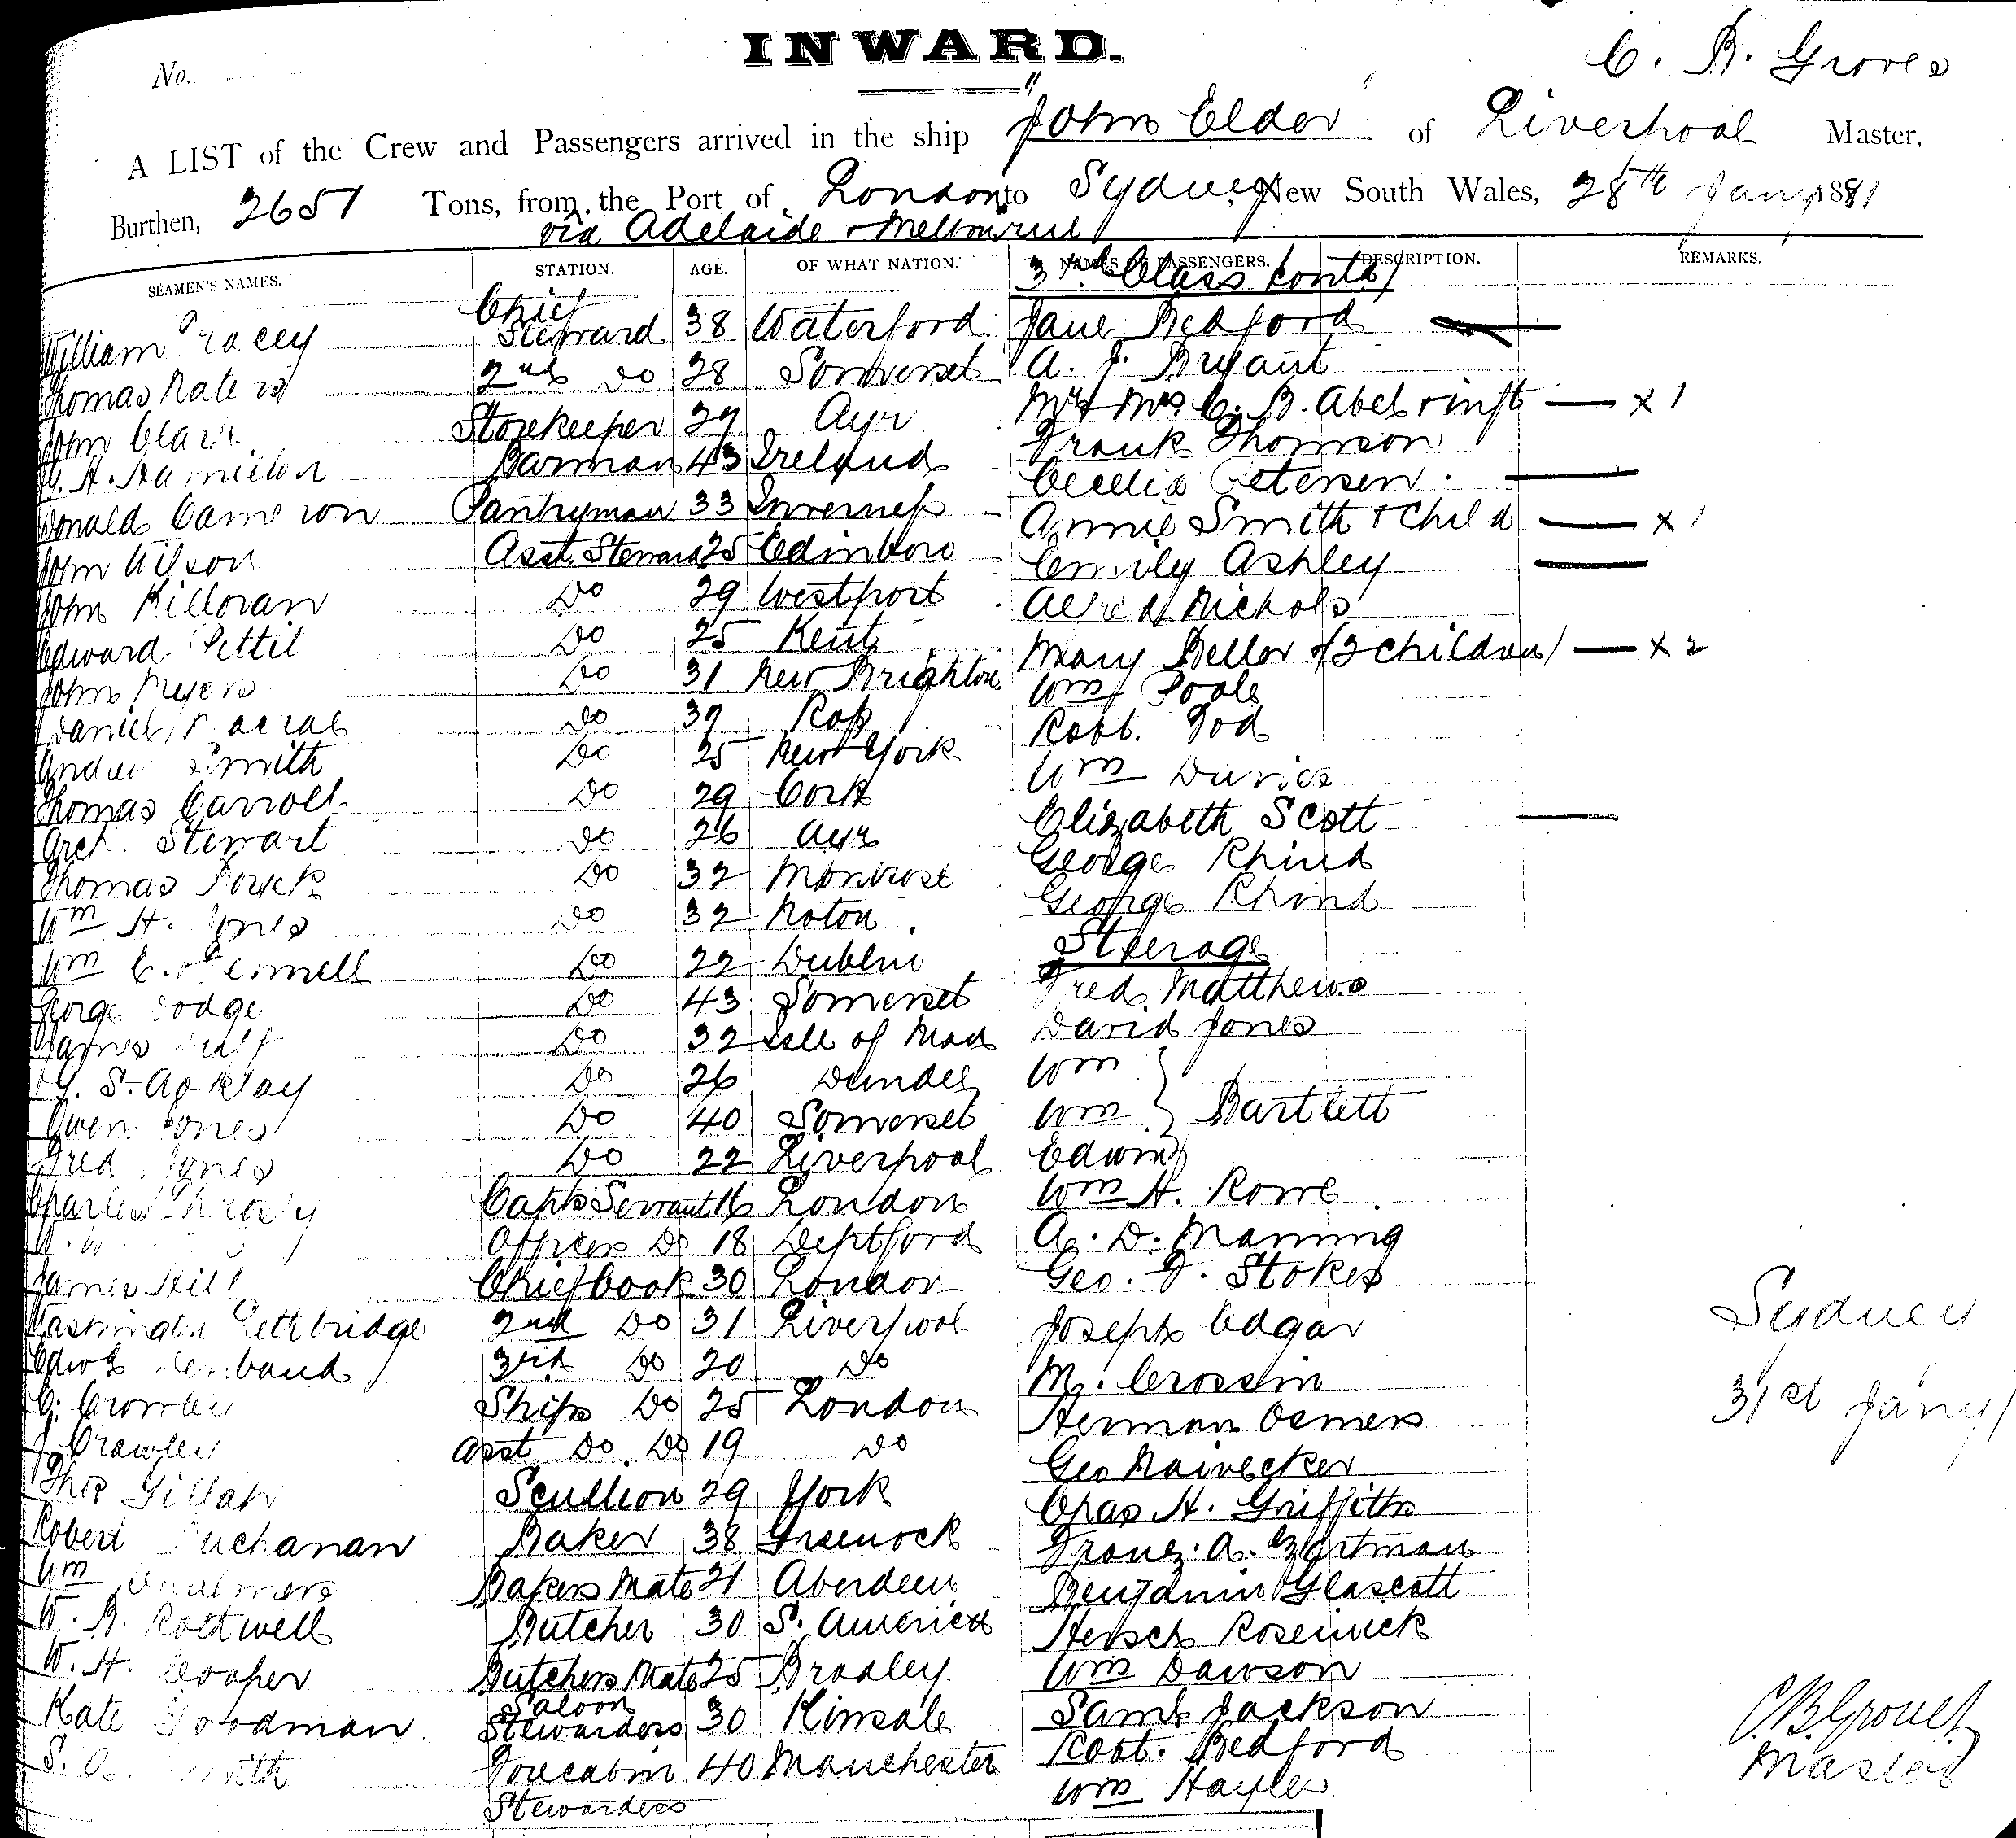 INWARD.
No.
C. B. Groves
A LIST of the Crew and Passengers arrived in the ship "John Elder" of Liverpool Master,
Burthen, 2651 Tons, from the Port of London to Sydney, New South Wales, 28th Jany 1881
via Adelaide & Melbourne
SEAMEN'S NAMES. STATION. AGE. OF WHAT NATION. NAMES OF PASSENGERS. DESCRIPTION. REMARKS.
3rd Class contd/
William Tracey Chief Steward 38 Waterford Jane Bedford
Thomas 2nd Do 28 Somerset A. J. Bryant
John Clark Storekeeper 29 Ayr Mr & Mrs C. B. Abel & inft x 1
A. Hamilton Barman 43 Ireland Frank Thomson
Donald Cameron Pantryman 33 Inverness Cecelia Petersen
John Wilson Asst. Steward 25 Edinboro Annie Smith & Child x 1
John Killoran Do 29 Westport Emily Ashley
Edward Pettit Do 25 Kent Alfred Nichols
John Myers Do 31 New Brighton Mary Bellor (2 children) x 2
Daniel Macrae Do 39 Ross Wm Poole
Andrew Smith Do 25 New York Robt. Tod
Thomas Carroll Do 29 Cork Wm
Arch. Stewart Do 26 Ayr Elizabeth Scott
Thomas Do 32 Montrose George Rhind
Wm H. Jones Do 32 George Rhind
Wm C. Do 22 Dublin Steerage
George Dodge Do 43 Somerset Fred Matthews
James Do 32 Isle of Man David Jones
S. Do 26 Dundee Wm
Owen Jones Do 40 Somerset Wm Bartlett
Fred Jones Do 22 Liverpool Edwin
Charles Capts Servant 16 London Wm H. Rowe
Officers Do 18 Deptford A. D. Manning
James Hill Chief Cook 30 London Geo. F. Stokes
Washington Lethbridge 2nd Do 31 Liverpool Joseph Edgar
3rd Do 20 Do M. Crossin
Ships Do 25 London Herman Osmers
J. Crawley Asst Do. Do 19 Do Geo Rainecker
Thos Gillah Scullion 29 York Chas H. Griffiths
Robert Buchanan Baker 38 Greenock Franz. A.
Wm Bakers Mate 21 Aberdeen Benjamin Glascott
W. R. Rothwell Butcher 30 S. America Hersch
W. H. Cooper Butchers Mate 25 Bradley Wm Dawson
Kate Goodman Saloon Stewardess 30 Kinsale Saml Jackson
S. A. Smith Forecabin Stewardess 40 Manchester Robt. Bedford
Wm Hayler
Sydney
31st Jany/
C. B. Groves
Master